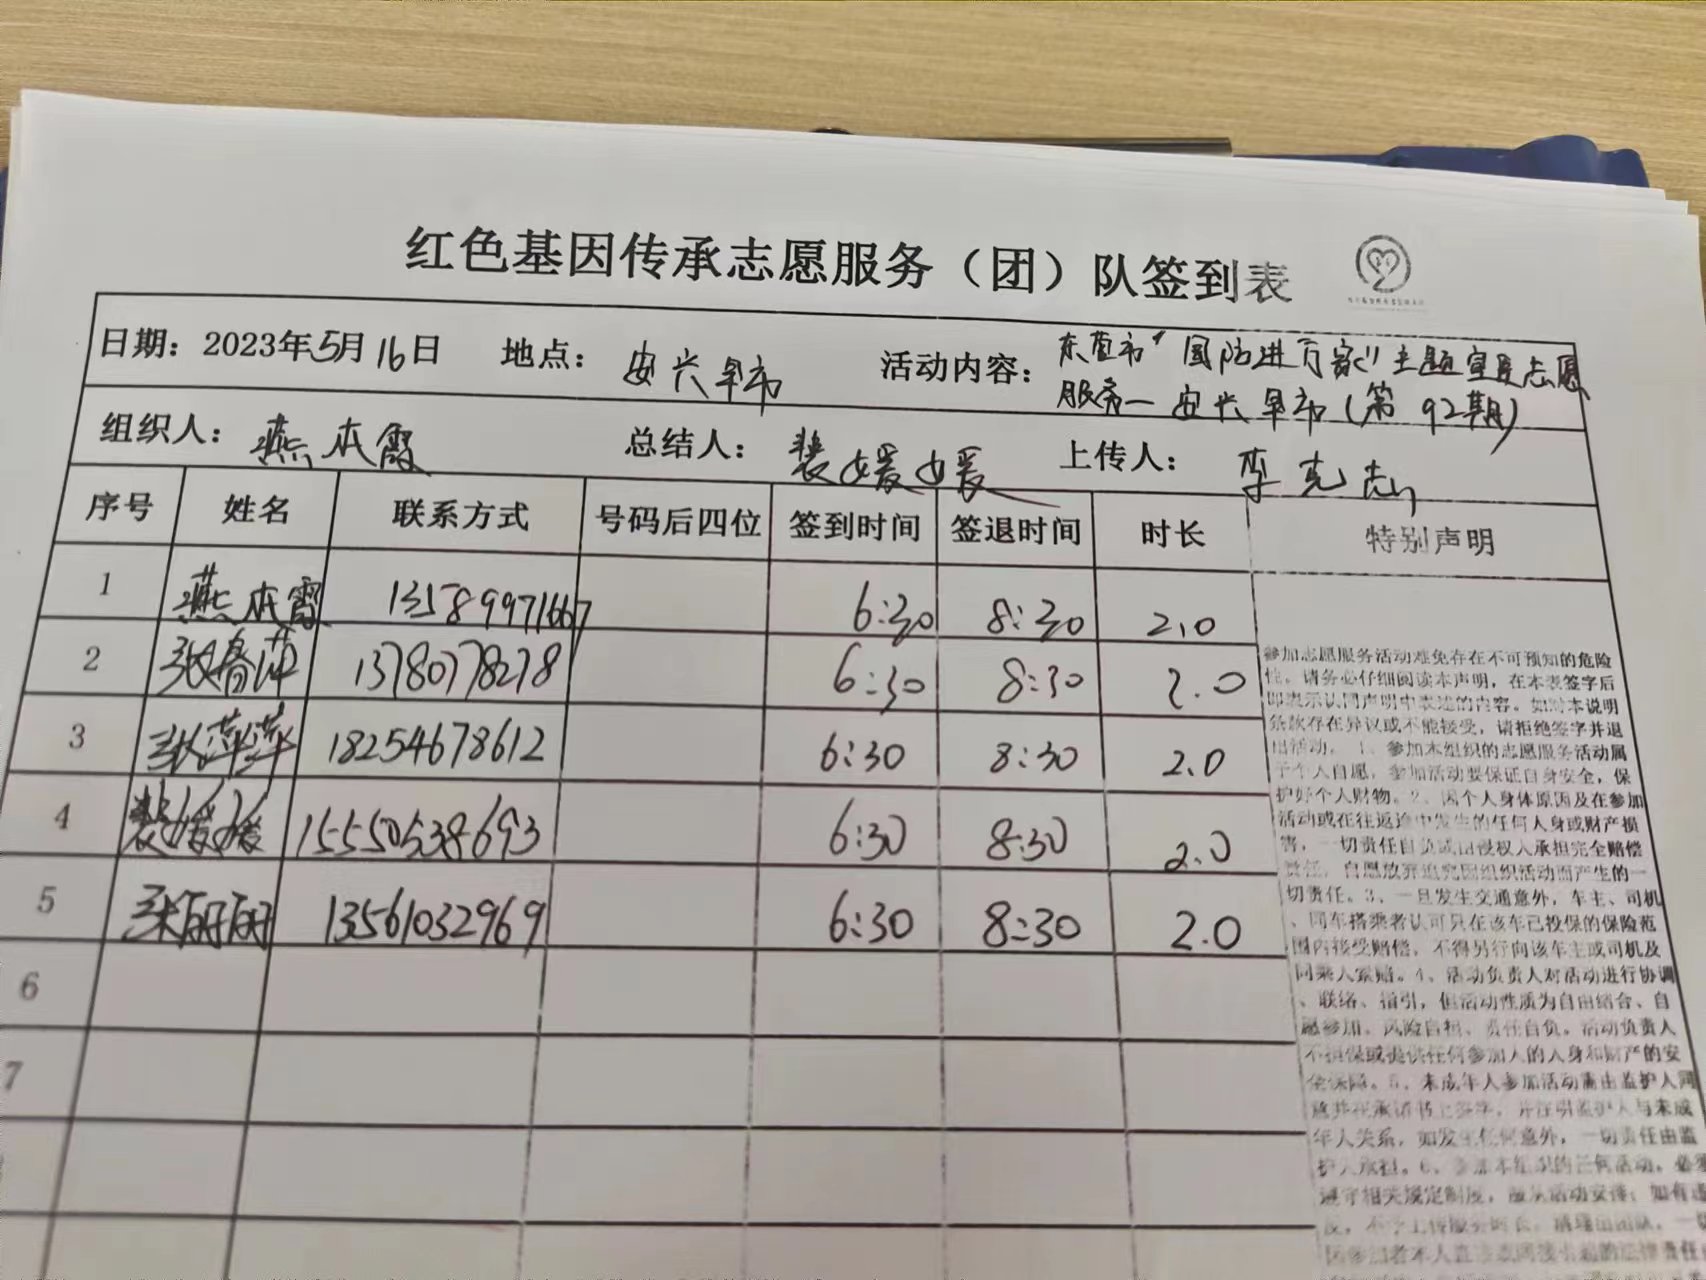 红色基因传承志愿服务（团）队签到表
日期：2023年5月16日 地点：安兴早市 活动内容：东营市"国防进万家"主题宣传志愿
服务—安兴早市（第92期）
组织人：燕本霞 总结人：裴媛媛 上传人：李克志
序号 姓名 联系方式 号码后四位 签到时间 签退时间 时长 特别声明
1 燕本霞 13589971667 6:30 8:30 2.0
2 张春萍 13780778278 6:30 8:30 2.0
3 张萍萍 18254678612 6:30 8:30 2.0
4 裴媛媛 15550538693 6:30 8:30 2.0
5 张丽丽 13561032969 6:30 8:30 2.0
6
7
参加志愿服务活动难免存在不可预知的危险
性。请务必仔细阅读本声明，在本表签字后
即表示认同声明中表述的内容。如对本说明
条款存在异议或不能接受，请拒绝签字并退
出活动。1、参加本组织的志愿服务活动属
于个人自愿，参加活动要保证自身安全，保
护好个人财物。2、因个人身体原因及在参加
活动或在往返途中发生的任何人身或财产损
害，一切责任自负或由侵权人承担完全赔偿
责任，自愿放弃追究因组织活动而产生的一
切责任。3、一旦发生交通意外，车主、司机
、同车搭乘者认可只在该车已投保的保险范
围内接受赔偿，不得另行向该车主或司机及
同乘人索赔。4、活动负责人对活动进行协调
、联络、指引，但活动性质为自由结合、自
愿参加、风险自担、责任自负。活动负责人
不担保或提供任何参加人的人身和财产的安
全保障。5、未成年人参加活动需由监护人同
意并在承诺书上签字，并注明监护人与未成
年人关系，如发生任何意外，一切责任由监
护人承担。6、参加本组织的任何活动，必须
遵守相关规定制度，服从活动安排；如有违